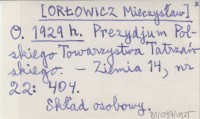 [ORŁOWICZ Mieczysław] x
O. 1929 h. Prezydjum Pol-
skiego Towarzystwa Tatrzań-
skiego. – Ziemia 14, nr
22: 404.
Skład osobowy.